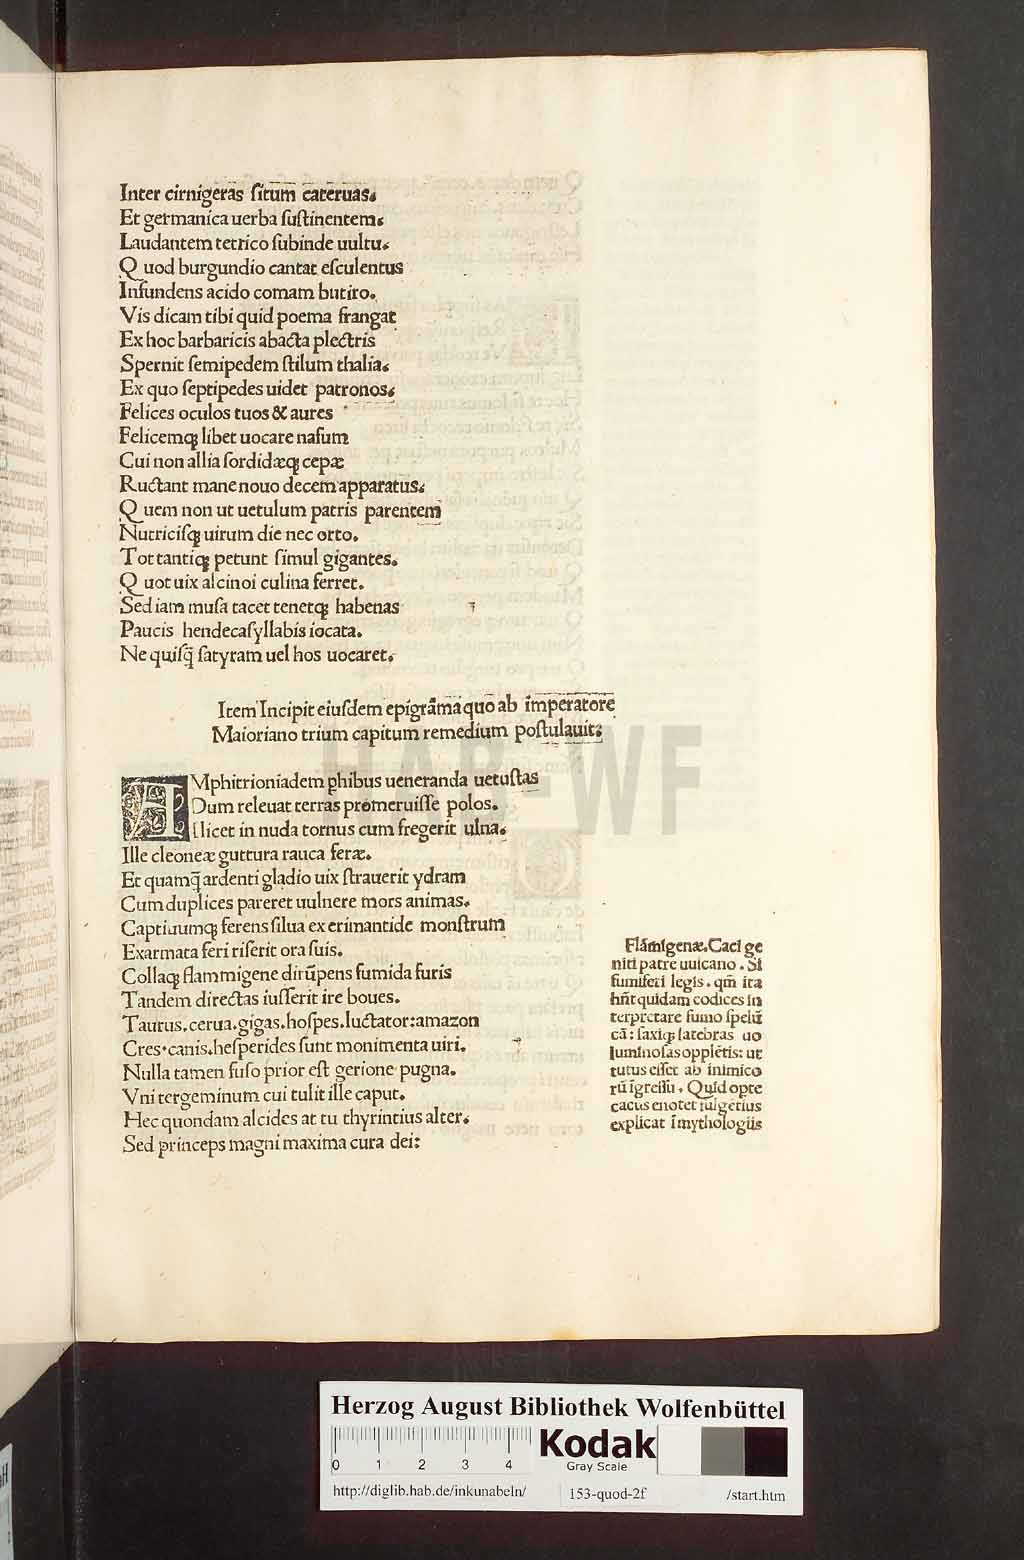 Inter cirnigeras ſitum cateruas.
Et germanica uerba ſuſtinentem.
Laudantem tetrico ſubinde uultu.
Quod burgundio cantat eſculentus
Infundens acido comam butiro.
Vis dicam tibi quid poema frangat
Ex hoc barbaricis abacta plectris
Spernit ſemipedem ſtilum thalia.
Ex quo ſeptipedes uidet patronos.
Felices oculos tuos & aures
Felicemqꝫ libet uocare naſum
Cui non allia ſordidæqꝫ cepæ
Ructant mane nouo decem apparatus.
Quem non ut uetulum patris parentem
Nutriciſqꝫ uirum die nec orto.
Tot tantiqꝫ petunt ſimul gigantes.
Quot uix alcinoi culina ferret.
Sed iam muſa tacet tenetqꝫ habenas
Paucis hendecaſyllabis iocata.
Ne quiſq̄ ſatyram uel hos uocaret.
Item Incipit eiuſdem epigrāma quo ab imperatore
Maioriano trium capitum remedium poſtulauit.
AMphitrioniadem phibus ueneranda uetuſtas
Dum releuat terras promeruiſſe polos.
Slicet in nuda tornus cum fregerit ulna.
Ille cleoneæ guttura rauca feræ.
Et quamq̄ ardenti gladio uix ſtrauerit ydram
Cum duplices pareret uulnere mors animas.
Captiuumqꝫ ferens ſilua ex erimantide monſtrum
Exarmata feri riſerit ora ſuis.
Collaqꝫ flammigene dirūpens fumida furis
Tandem directas iuſſerit ire boues.
Taurus.cerua.gigas.hoſpes.luctator:amazon
Cres.canis.heſperides ſunt monimenta uiri.
Nulla tamen fuſo prior eſt gerione pugna.
Vni tergeminum cui tulit ille caput.
Hec quondam alcides at tu thyrintius alter.
Sed princeps magni maxima cura dei:
Flāmigenæ.Caci ge
niti patre uulcano. Si
fumiferi legis. qm̄ ita
hn̄t quidam codices in
terpretare fumo ſpelū
cā: ſaxiqꝫ latebras uo
luminoſas oppletis: ut
tutus eſſet ab inimico
rū īgreſſu. Quid opte
cacus enotet fulgetius
explicat ī mythologiis
HAB-WF
Herzog August Bibliothek Wolfenbüttel
0 1 2 3 4
Kodak
Gray Scale
http://diglib.hab.de/inkunabeln/ 153-quod-2f /start.htm